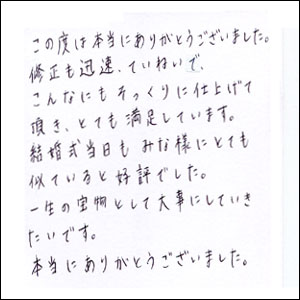 この度は本当にありがとうございました。
修正も迅速、ていねいで、
こんなにもそっくりに仕上げて
頂き、とても満足しています。
結婚式当日もみな様にとても
似ていると好評でした。
一生の宝物として大事にしていき
たいです。
本当にありがとうございました。